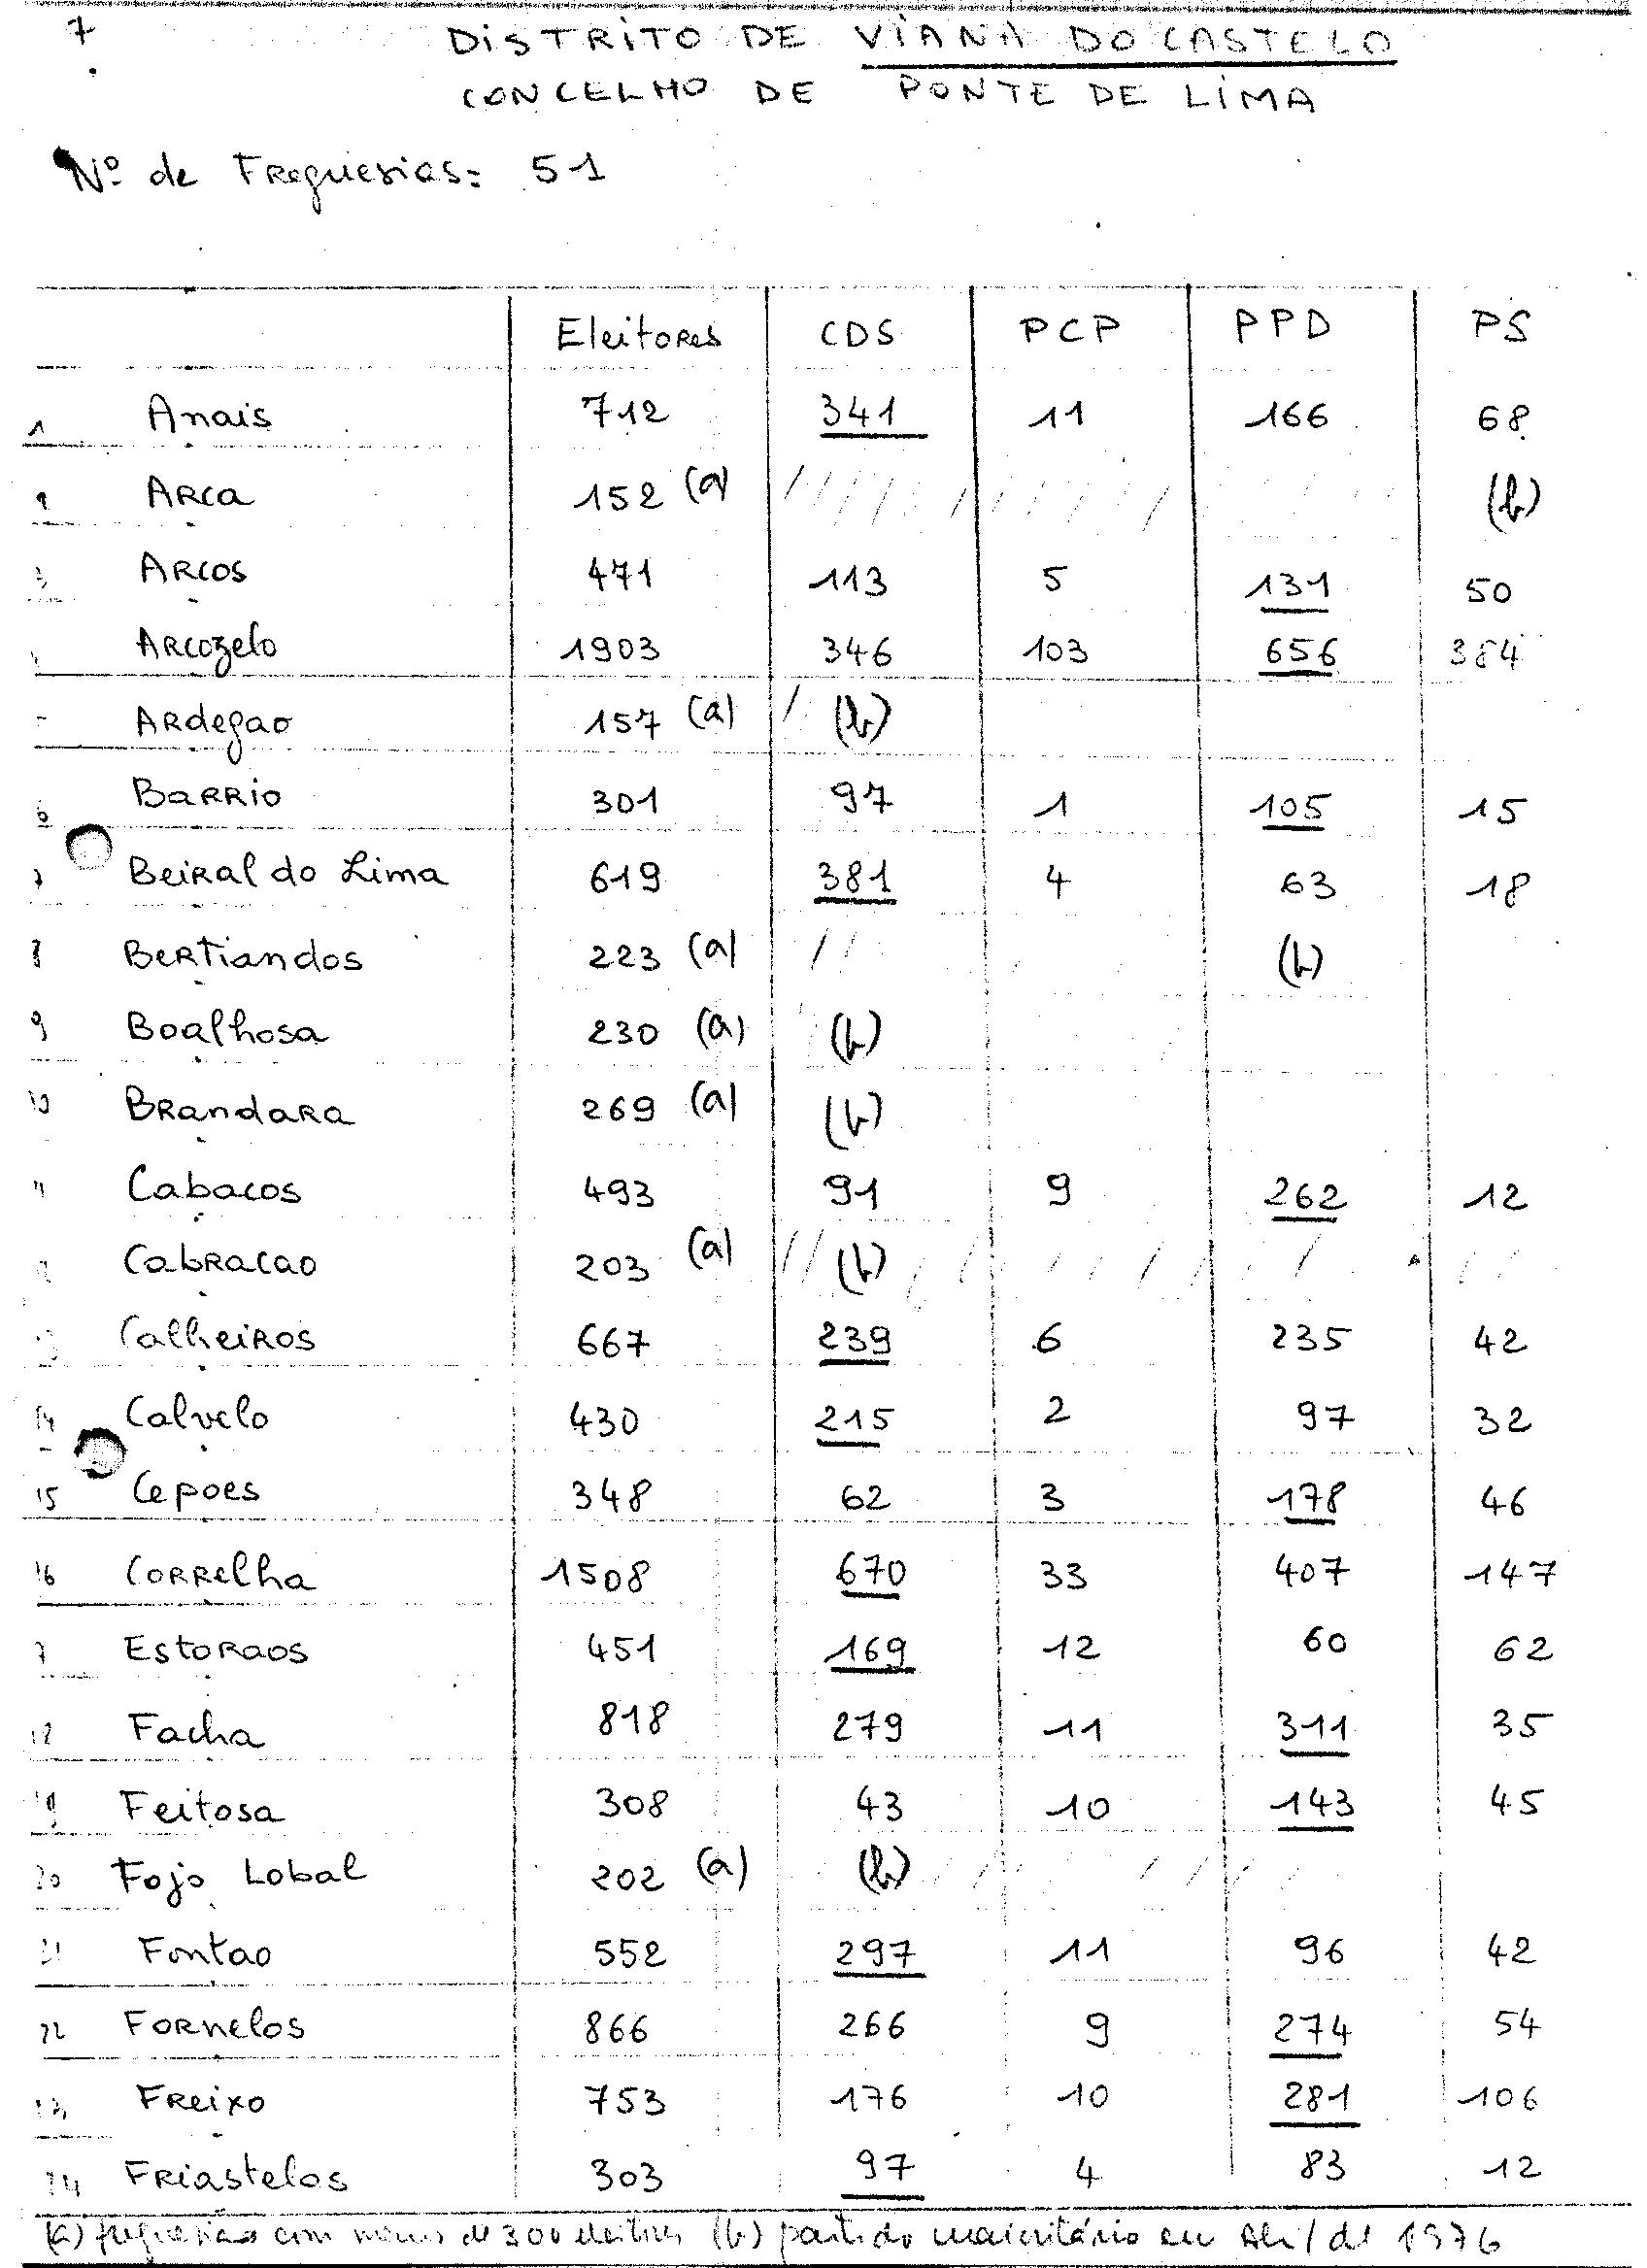 7
DISTRITO DE VIANA DO CASTELO
CONCELHO DE PONTE DE LIMA
Nº de Freguesias: 51
Eleitores CDS PCP PPD PS
1 Anais 712 341 11 166 68
Arca 152 (a) (b)
3 Arcos 471 113 5 131 50
Arcozelo 1903 346 103 656 384
Ardegao 157 (a) (b)
6 Barrio 301 97 1 105 15
7 Beiral do Lima 619 381 4 63 18
8 Bertiandos 223 (a) (b)
9 Boalhosa 230 (a) (b)
10 Brandara 269 (a) (b)
11 Cabacos 493 91 9 262 12
Cabracao 203 (a) (b)
Calheiros 667 239 6 235 42
14 Calvelo 430 215 2 97 32
15 Cepoes 348 62 3 178 46
16 Correlha 1508 670 33 407 147
7 Estoraos 451 169 12 60 62
18 Facha 818 279 11 311 35
19 Feitosa 308 43 10 143 45
20 Fojo Lobal 202 (a) (b)
21 Fontao 552 297 11 96 42
22 Fornelos 866 266 9 274 54
23 Freixo 753 176 10 281 106
24 Friastelos 303 97 4 83 12
(a) freguesias com menos de 300 eleitores (b) partido maioritário em Abril de 1976